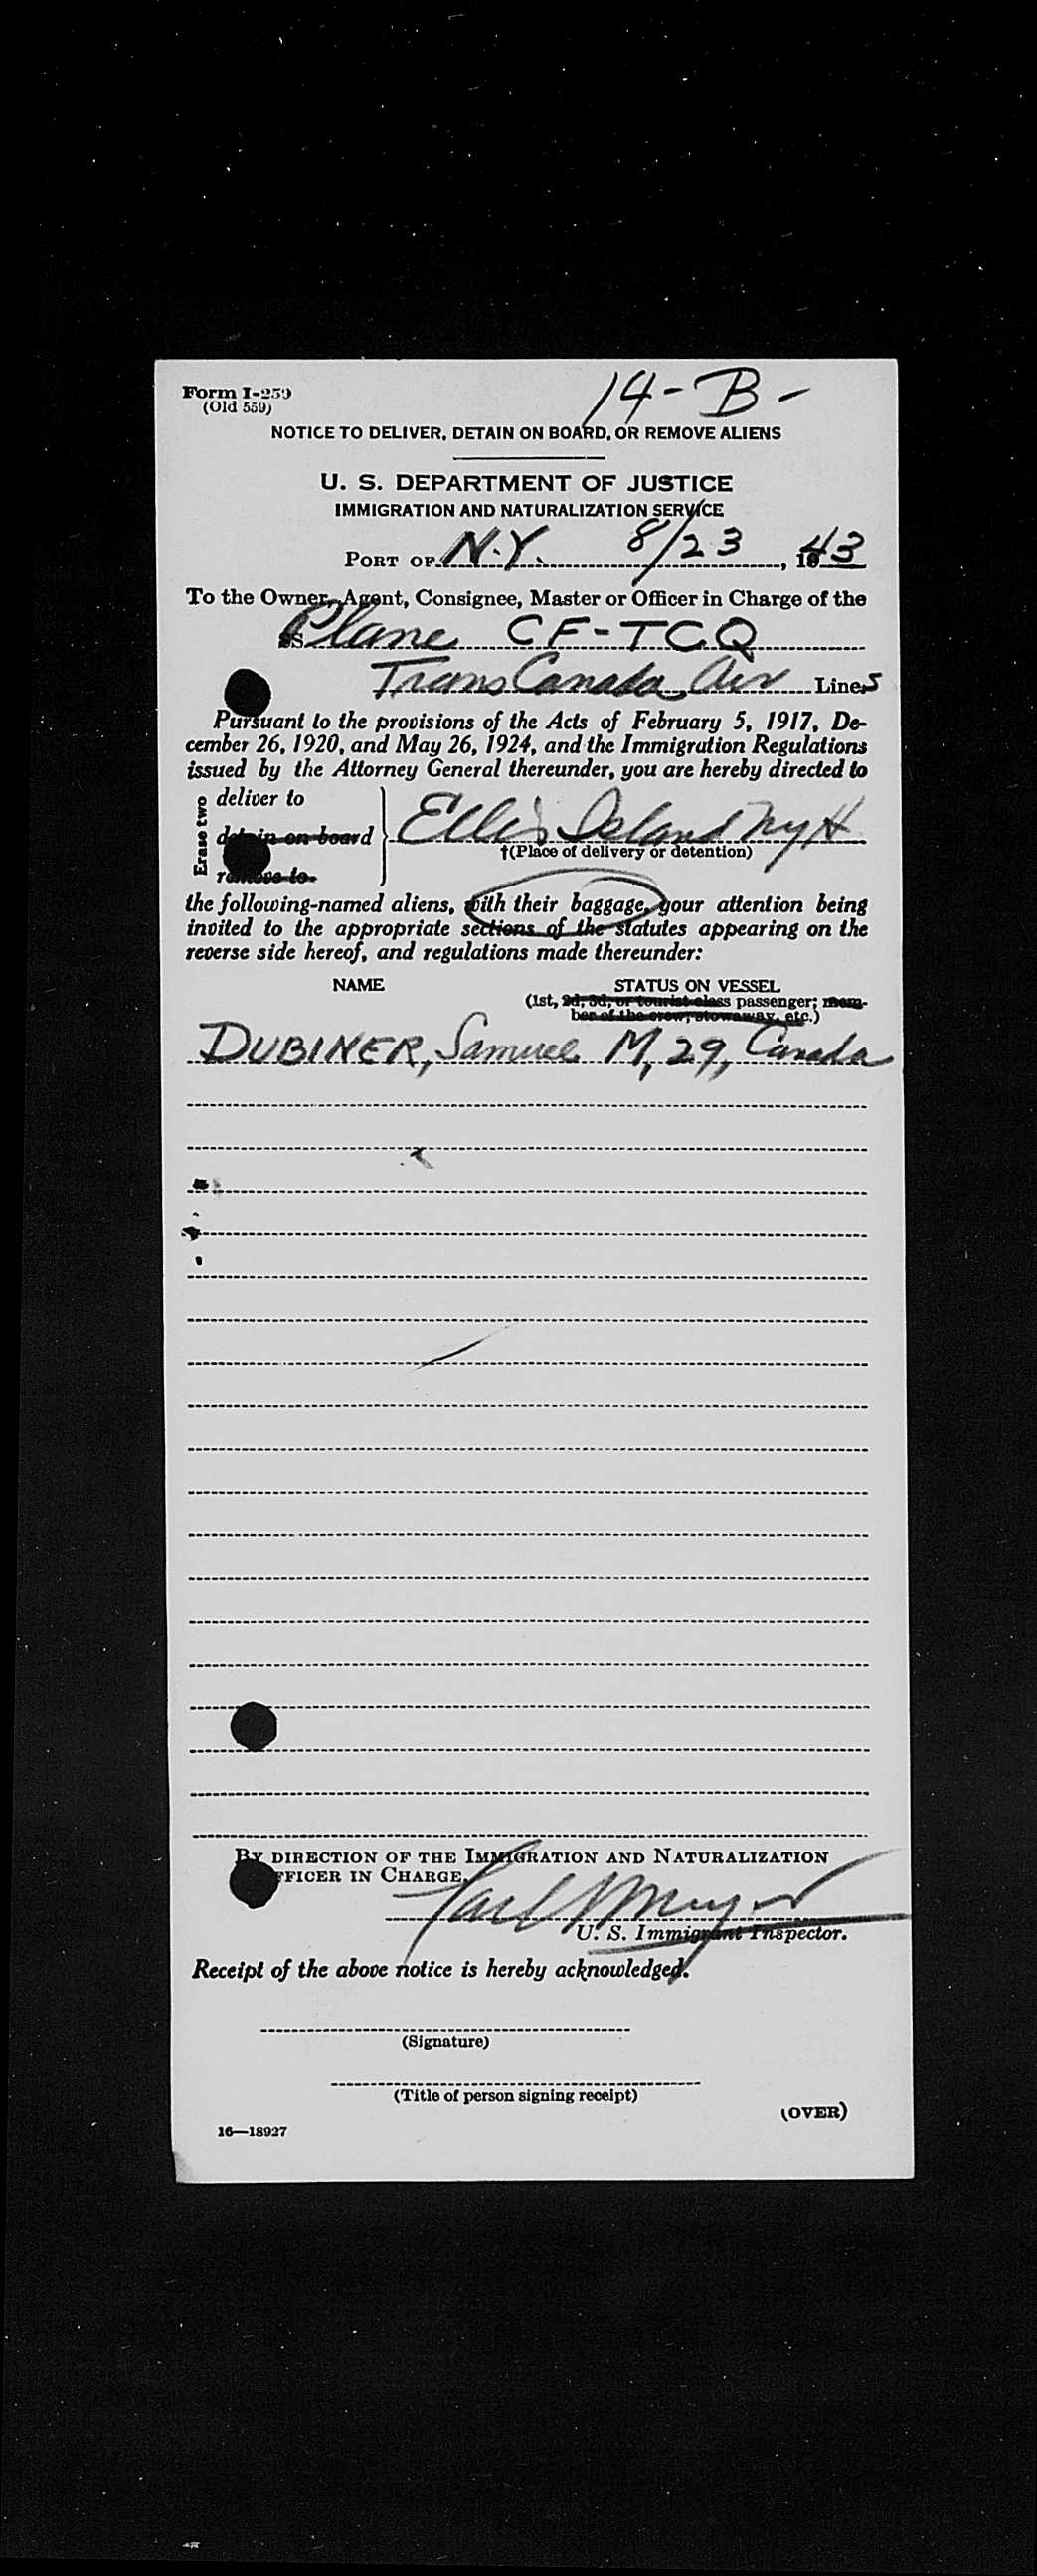 Form I-259
(Old 559)
14-B-
NOTICE TO DELIVER, DETAIN ON BOARD, OR REMOVE ALIENS
U. S. DEPARTMENT OF JUSTICE
IMMIGRATION AND NATURALIZATION SERVICE
PORT OF N.Y. 8/23, 1943
To the Owner, Agent, Consignee, Master or Officer in Charge of the
SS Plane CF-TCQ
Trans Canada Air Lines
Pursuant to the provisions of the Acts of February 5, 1917, De-
cember 26, 1920, and May 26, 1924, and the Immigration Regulations
issued by the Attorney General thereunder, you are hereby directed to
Erase two
deliver to
detain on board
remove to
Ellis Island NYH
†(Place of delivery or detention)
the following-named aliens, with their baggage, your attention being
invited to the appropriate sections of the statutes appearing on the
reverse side hereof, and regulations made thereunder:
NAME STATUS ON VESSEL
(1st, 2d, 3d, or tourist class passenger; mem-
ber of the crew, stowaway, etc.)
DUBINER, Samuel M, 29, Canada
BY DIRECTION OF THE IMMIGRATION AND NATURALIZATION
OFFICER IN CHARGE,
U. S. Immigrant Inspector.
Receipt of the above notice is hereby acknowledged.
(Signature)
(Title of person signing receipt)
(OVER)
16—18927